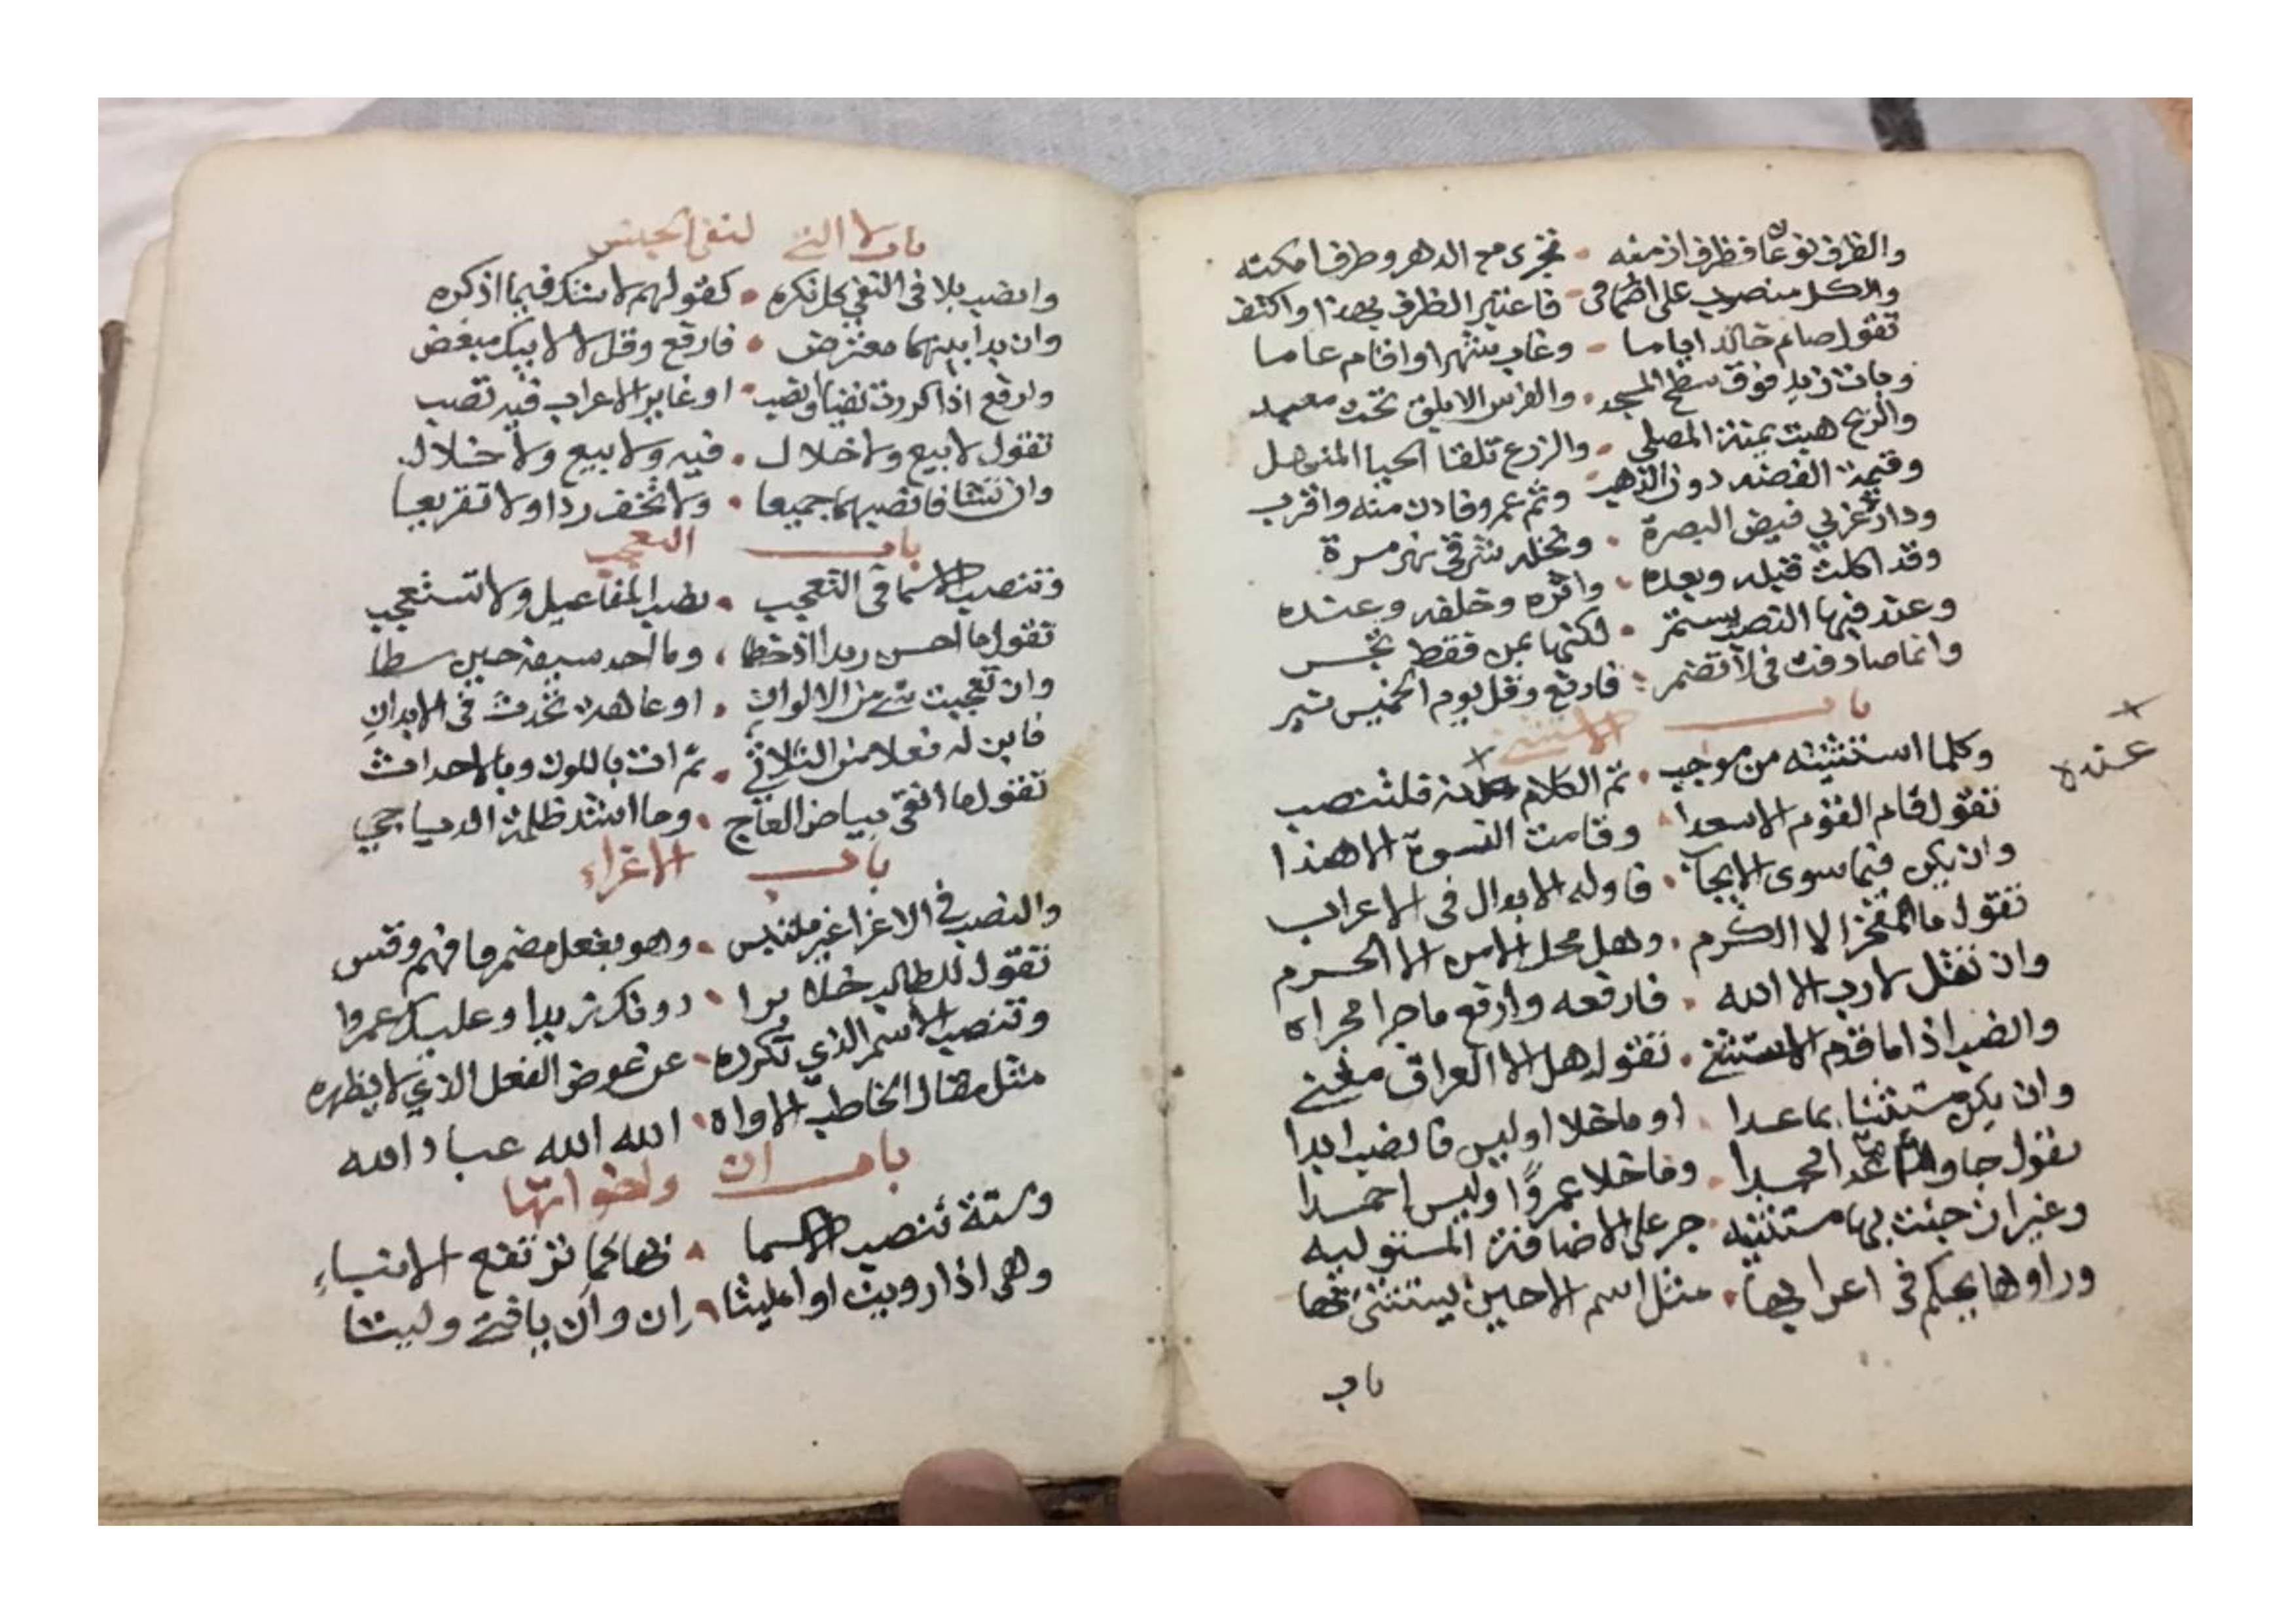 والظرف نوعان فظرف ازمنه • تجرى مع الدهر وظرف امكنه
والكل منصوب على اضمار فى • فاعتبر الظرف بهذا واكتف
تقول صام خالد اياما • وغاب شهرا واقام عاما
وبات زيد فوق سطح المسجد • والفرس الابلق تحت معبد
والريح هبت يمنة المصلى • والزرع تلقا الحيا المنهل
وقيمة الفضه دون الذهب • وثم عمرو فادن منه واقرب
ودار غربي فيض البصرة • ونخله شرقي نهر مرة
وقد اكلت قبله وبعده • واثره وخلفه وعنده
وعند فيها النصب يستمر • لكنها بمن فقط تجر
واينما صادفت فى لا تضمر • فارفع وقل يوم الخميس نير
باب الاستثنى
وكلما استثنيته من موجب • تم الكلام عنده فلتنصب
عنده
تقول قام القوم الا سعدا • وقامت النسوة الا هندا
وان يكن فيما سوى الايجاب • فاوله الابدال فى الاعراب
تقول ما المفخر الا الكرم • وهل محل الامن الا الحرم
وان تقل لا رب الا الله • فارفعه وارفع ما جرا مجراه
وانصب اذا ما قدم الاستثنى • تقول هل الا العراق مغنى
وان يكن مستثنا بما عدا • او ما خلا او ليس فانصب ابدا
تقول جاوا ما عدا محمدا • وما خلا عمروًا وليس احمدا
وغير ان جئت بها مستثنيه • جر على الاضافة المستوليه
وراوها يحكم فى اعرابها • مثل اسم الا حين يستثنى بها
باب
باب لا التى لنفى الجنس
وانصب بلا فى النفي كل نكره • كقولهم لا شك فيما اذكره
وان بدا بينهما معترض • فارفع وقل لا لابيك مبغض
وارفع اذا كررت نفيا وانصب • او غاير الاعراب فيه تصب
تقول لا بيع ولا خلال • فيه ولا بيع ولا خلال
وان تشا فانصبهما جميعا • ولا تخف ردا ولا تقريعا
باب التعجب
وتنصب الاسما فى التعجب • نصب المفاعيل ولا تستعجب
تقول ما احسن زيدا اذ خطا • وما احد سيفه حين سطا
وان تعجبت من الالوان • او عاهة تحدث فى الابدان
فابن له فعلا من الثلاثي • ثم ائت باللون وبالاحداث
تقول ما انقى بياض العاج • وما اشد ظلمة الدياجي
باب الاغراء
والنصب في الاغرا غير ملتبس • وهو بفعل مضمر فافهم وقس
تقول للطالب خلا برا • دونك زيدا وعليك عمروا
وتنصب الاسم الذي تكرره • عن عوض الفعل الذي لا يظهره
مثل مقال الخاطب الاواه • الله الله عباد الله
باب ان واخواتها
وستة تنصب الاسما • بها كما ترتفع الانباء
وهى اذا رويت او امليتا • ان وان يا فتى وليتا